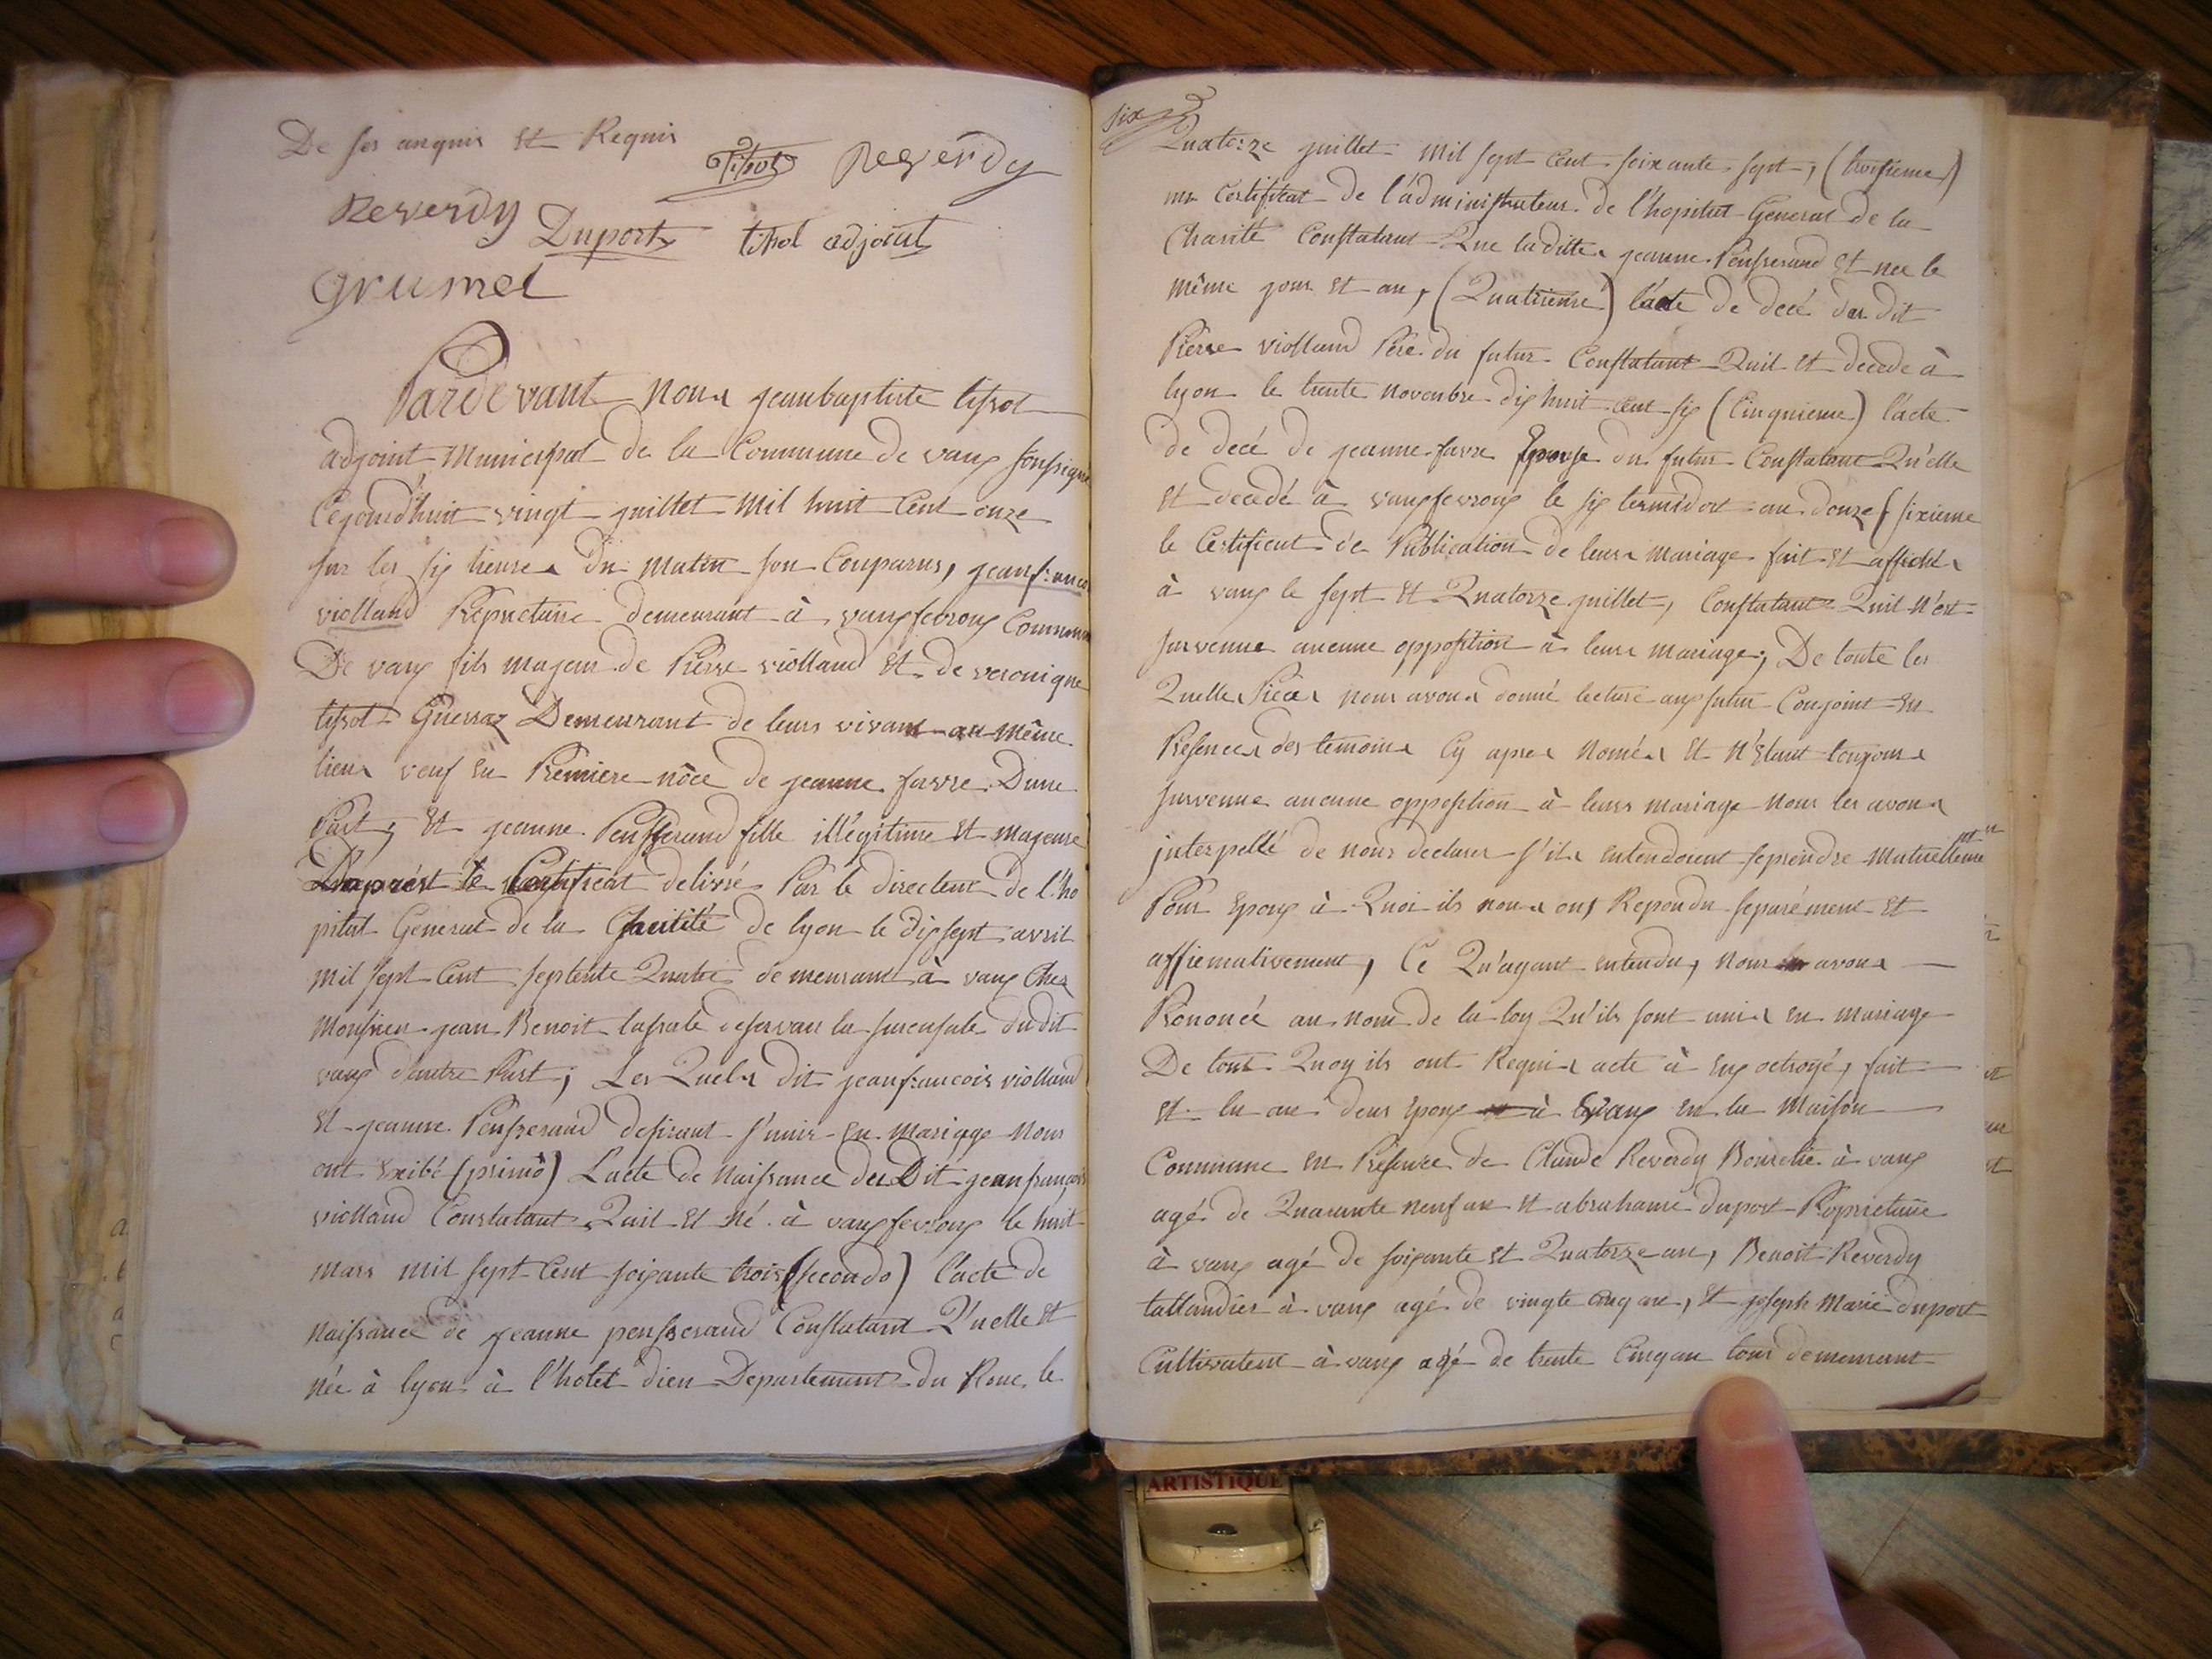 De ses anquis Et Requis
Tissot Reverdy
Reverdy Duport tissot adjoint
Grumel
Pardevant nous jeanbaptiste tissot
adjoint Municipal de la Commune de vaux soussigné
Cejourd'huit vingt juillet Mil huit Cent onze
sur les six heures du matin son Comparus, jeanfrancois
violland Proprietaire demeurant à vauxfevroux Commune
De vaux fils majeur de Pierre violland Et de veronique
tissot Guerraz Demeurant de leurs vivant au même
lieux veuf En Premiere nôce de jeanne favre Dune
Part; Et jeanne Pensserand fille illégitime Et majeure
D'aprést le Certificat delivré Par le directeur de l'ho
pital General de la Charité de lyon le dixsept avril
mil sept Cent septente Quatre demeurant à vaux Chez
Monsieur jean Benoit lasale deservan la sucursale dudit
vaux d'autre Part; Les Quels dit jeanfrancois violland
Et jeanne Pensserand desirant s'unir En Mariage nous
ont Exibé (primò) L'acte de Naissance du Dit jeanfrançois
violland Constatant Quil Et né à vauxfevroux le huit
mars mil sept Cent soixante trois (secondo) l'acte de
naissance de jeanne pensserand Constatant Qu'elle Et
née à lyon à l'hotel dieu Departement du Rone le
six
Quatorze juillet mil sept Cent soixante sept, (troisieme)
un Certificat de l'administrateur de l'hopital General de la
Charité Constatant Que laditte jeanne Pensserand Et nee le
même jour Et an, (Quatrieme) l'acte de decé du dit
Pierre violland Père du futur Constatant Quil Et decede à
lyon le trente Novenbre dix huit cent six (Cinquieme) l'acte
de decé de jeanne favre Epouse du futur Constatant Qu'elle
Et decedé à vauxfevroux le six termidort an douze (sixieme
le Certificat de Publication de leurs mariage fait Et affiché
à vaux le sept Et Quatorze juillet, Constatant Quil N'est
survenue aucune opposition à leurs mariage; De toute les
Quelles Pièces nous avons donné lecture aux futur Conjoint En
Presences des temoins Cy apres Només Et N'Etant toujours
survenue aucune opposition à leurs mariage Nous les avons
jnterpellé de nous declarer s'ils entendoient seprendre Mutuelleme
Pour Epoux à Quoi ils nous ont Repondu separément Et
affirmativement, Ce Qu'ayant entendu, nous avons
Prononcé au nom de la loy Qu'ils sont unis En mariage
De tous Quoy ils ont Requis acte à Eux octroyé, fait
Et lu au deux Epoux à Vaux En la Maison
Commune En Présence de Claude Reverdy Bourelié à vaux
agé de Quarante neuf an Et abrahame duport Proprietaire
à vaux agé de soixante Et Quatorze an, Benoit Reverdy
tallandier à vaux agé de vingte cinq an, Et joseph Marie duport
Cultivateur à vaux agé de trente Cinq an tous demeurant
ARTISTIQUE